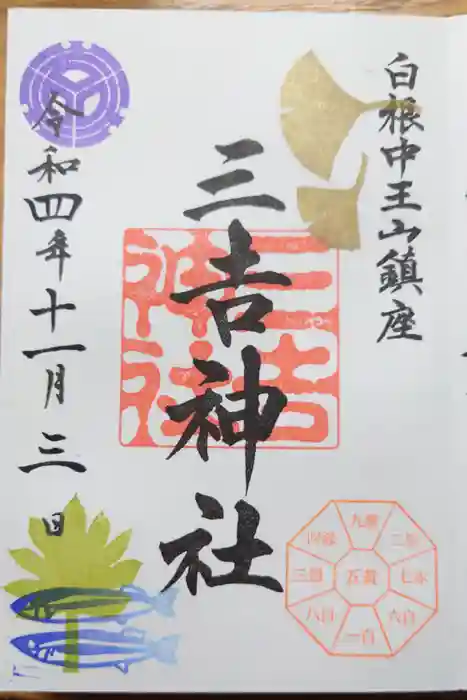 白根中王山鎮座
三吉神社
三吉
神社
令和四年十一月三日
九紫
二黒
七赤
六白
一白
八白
三碧
四緑
五黄